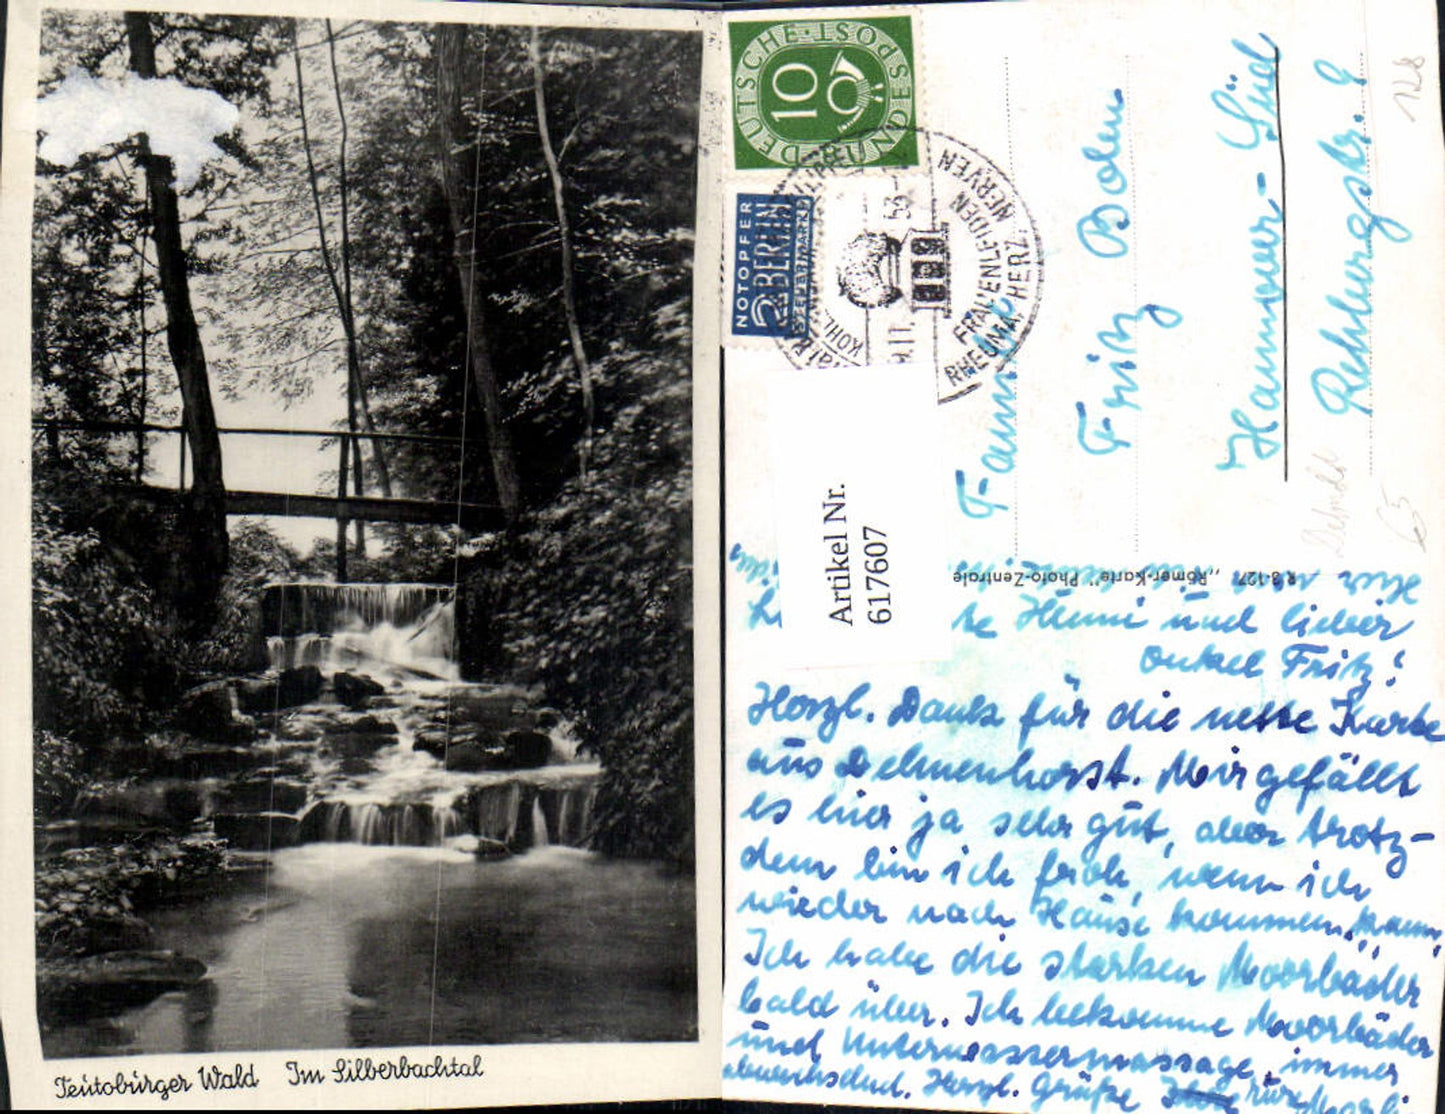 Teutoburger Wald Im Silberbachtal
DEUTSCHE·POST
BUNDESPOST
10
NOTOPFER
2 BERLIN
STEUERMARKE
FRAUENLEIDEN
RHEUMA, HERZ, NERVEN
KOHL
9.11.
53
Artikel Nr.
617607
Familie
Fritz Boden
Hannover-Süd
Rehburgstr. 9
128
65
„Römer-Karte" Photo-Zentrale
R 3-127
te Mimi und lieber
Onkel Fritz!
Herzl. Dank für die nette Karte
aus Delmenhorst. Mir gefällt
es hier ja sehr gut, aber trotz-
dem bin ich froh, wenn ich
wieder nach Hause kommen kann.
Ich habe die starken Moorbäder
bald über. Ich bekomme Moorbäder
und Unterwassermassage, immer
abwechselnd. Herzl. Grüße